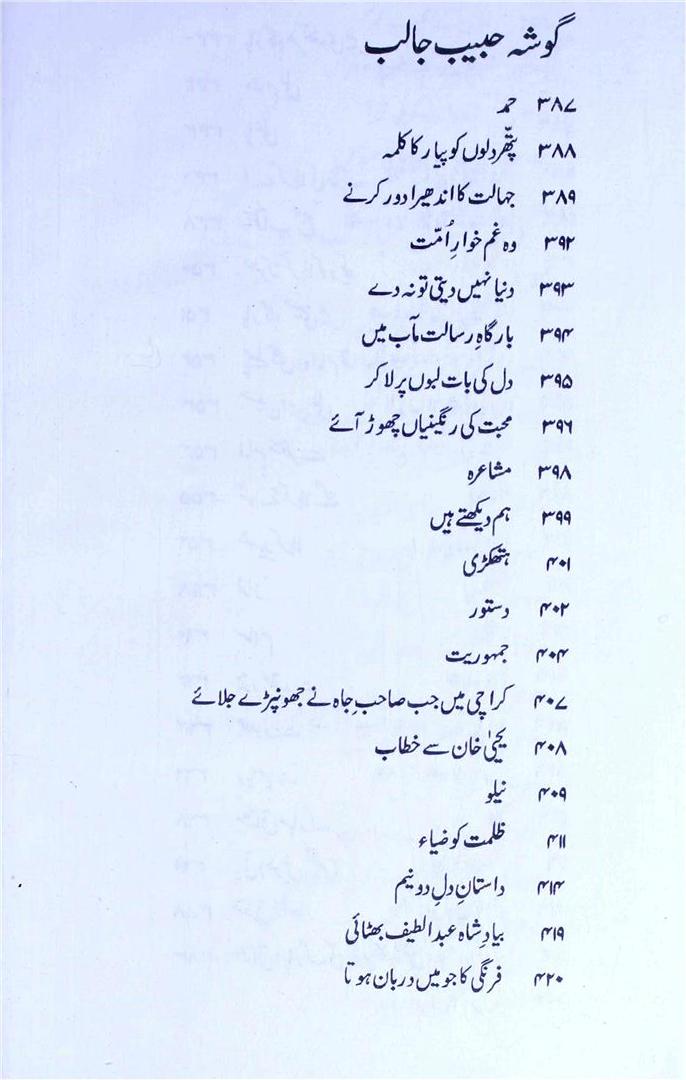 گوشہ حبیب جالب
۳۸۷ حمد
۳۸۸ پتّھر دلوں کو پیار کا کلمہ
۳۸۹ جہالت کا اندھیرا دور کرنے
۳۹۲ وہ غم خوارِ اُمّت
۳۹۳ دنیا نہیں دیتی تو نہ دے
۳۹۴ بارگاہِ رسالت مآب میں
۳۹۵ دل کی بات لبوں پر لا کر
۳۹۶ محبت کی رنگینیاں چھوڑ آئے
۳۹۸ مشاعرہ
۳۹۹ ہم دیکھتے ہیں
۴۰۱ ہتھکڑی
۴۰۲ دستور
۴۰۴ جمہوریت
۴۰۷ کراچی میں جب صاحبِ جاہ نے جھونپڑے جلائے
۴۰۸ یحیٰی خان سے خطاب
۴۰۹ نیلو
۴۱۱ ظلمت کو ضیاء
۴۱۴ داستانِ دلِ دو نیم
۴۱۹ بیادِ شاہ عبد الطیف بھٹائی
۴۲۰ فرنگی کا جو میں دربان ہوتا